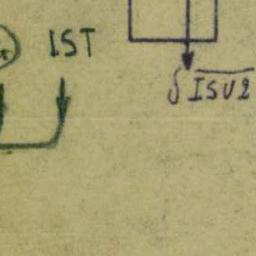 IST
∫ ISU2